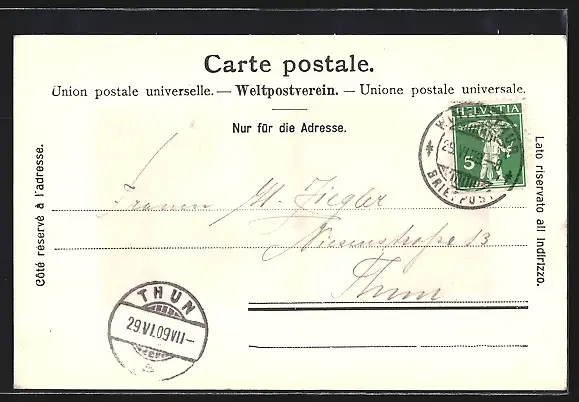 Carte postale.
Union postale universelle. — Weltpostverein. — Unione postale universale.
Nur für die Adresse.
Côté réservé à l'adresse.
Lato riservato all indirizzo.
HELVETIA
5
BRIEFPOST
M. Ziegler
Niesenstrasse 13
Thun
THUN
29.VI.09.VII—